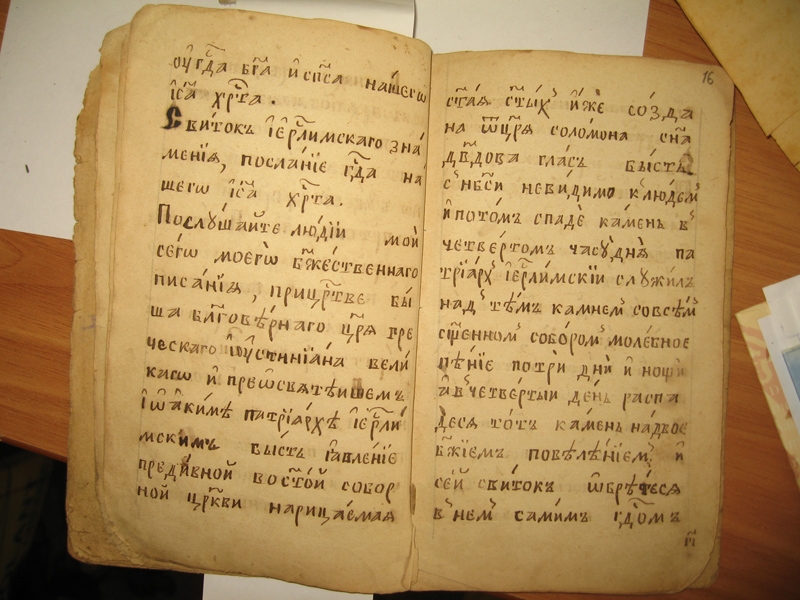 ѹ гд҃а бг҃а и҆ сп҃са на́шегѡ
і҆с҃а хрⷭ҇та .
Сви́токъ і҆ерⷭ҇ли́мскаго зна́
менїѧ, посла́нїе гдⷭ҇а на́
шегѡ і҆с҃а хрⷭ҇та.
Послꙋ́шайте лю́дїй мои̑
сегѡ̀ моегѡ̀ бж҃е́ственнаго
писа́нїѧ, прицрⷭ҇тве бы́
ша бл҃гове́рнаго цр҃ѧ гре
ческаго і҆ꙋсти́нїа́на вели́
кагѡ и҆ прео҆свѧте́ишемъ
і҆ѡаки́мѣ патрїа́рхѣ і҆ерⷭ҇ли́
мскимъ бы́сть ꙗ҆вле́нїе
преди́вной востⷪ҇й собор
ной цр҃кви нарица́емаѧ
16
ст҃а́ѧ ст҃ы́хъ и҆́же со́зда
на ѿ цр҃ѧ соло́мона сн҃а
дв҃дова гла́съ бы́сть
с̾ нб҃си неви́димо к̾ лю́демъ
и҆ пото́мъ спадѐ ка́мень в̾
четве́ртомъ часꙋ̀ днѧ̀ па
трїа́рхъ і҆ерⷭ҇ли́мскїй слꙋжи́лъ
надъ те́мъ камнемъ совсе́мъ
сщ҃е́нномъ собо́ромъ моле́бное
пѣ́нїе потрѝ днѝ и҆ нощи
а҆ в̾ четве́ртый де́нь распа
де́сѧ то́тъ ка́мень на́двое
бж҃їемъ повелѣ́нїемъ и҆
се́й сви́токъ ѡ҆брѣ́теся
в̾ немъ сами́мъ гдⷭ҇омъ